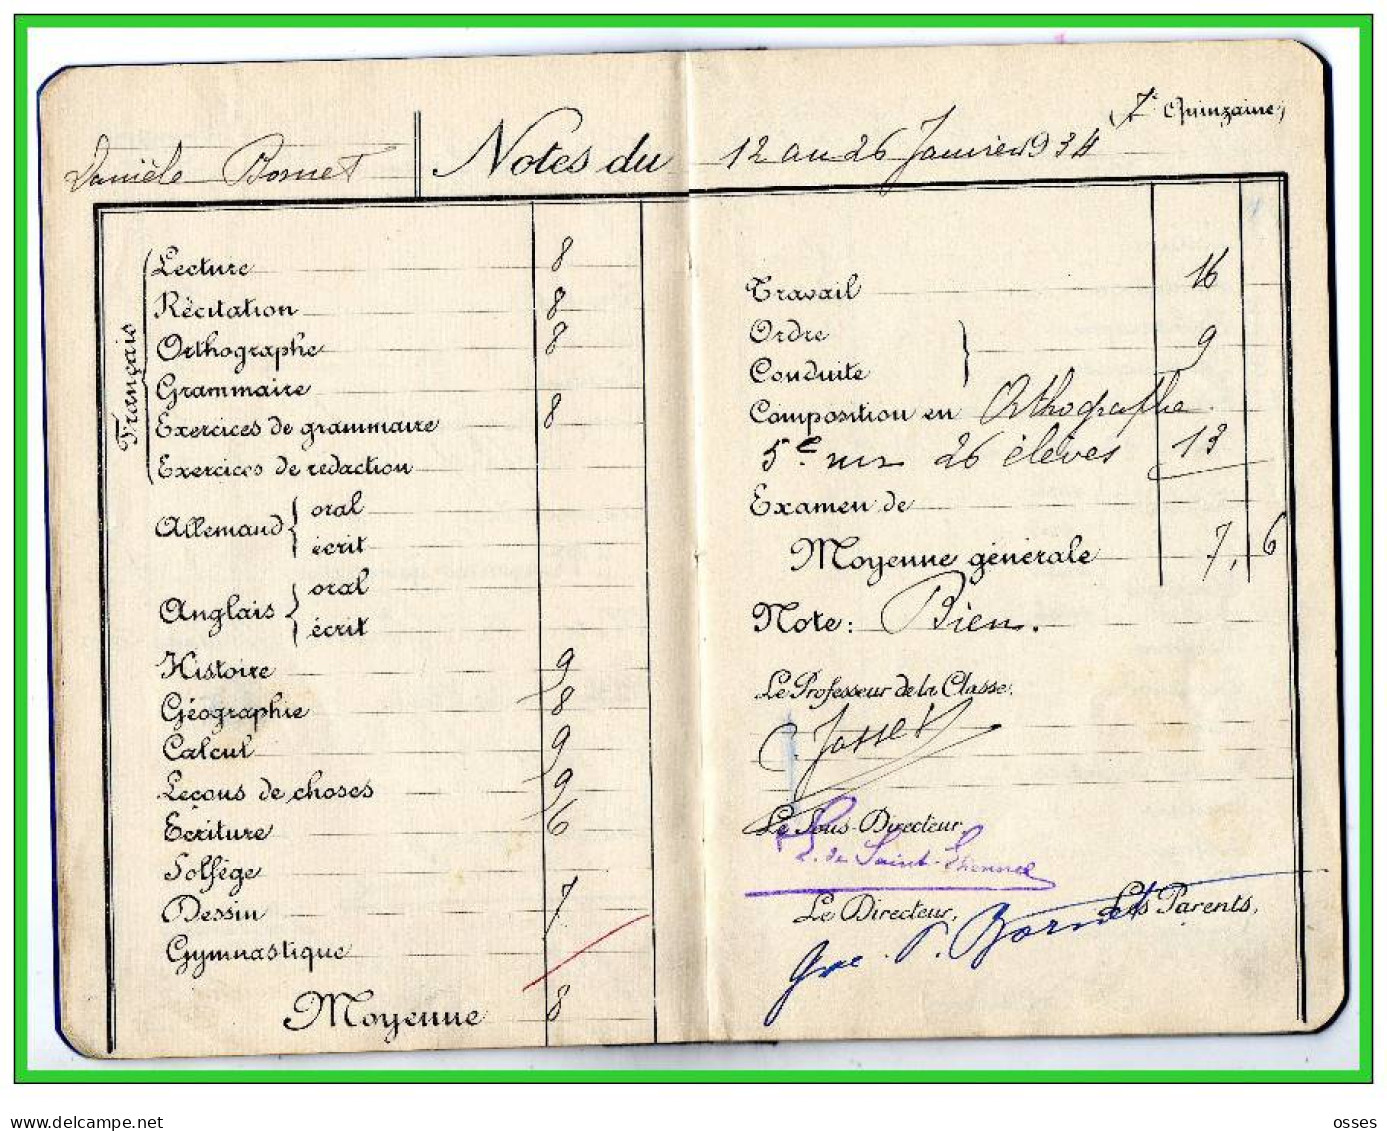 (7e Quinzaine)
Danièle Bornet Notes du 12 au 26 Janvier 1934
Français
Lecture 8
Récitation 8
Orthographe 8
Grammaire
Exercices de grammaire 8
Exercices de rédaction
Allemand oral
écrit
Anglais oral
écrit
Histoire 9
Géographie 8
Calcul 9
Leçons de choses 9
Ecriture 6
Solfège
Dessin 7
Gymnastique
Moyenne 8
Travail 16
Ordre
Conduite 9
Composition en Orthographe
5e sur 26 élèves 13
Examen de
Moyenne générale 7,6
Note: Bien.
Le Professeur de la Classe.
Le Sous-Directeur.
Le Directeur, Les Parents,
P. Bornet
delcampe.net
osses